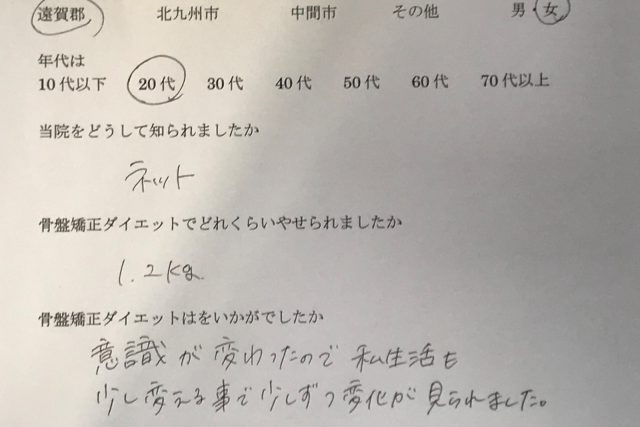 遠賀郡 北九州市 中間市 その他 男・女
年代は
10代以下 20代 30代 40代 50代 60代 70代以上
当院をどうして知られましたか
ネット
骨盤矯正ダイエットでどれくらいやせられましたか
1.2kg
骨盤矯正ダイエットはをいかがでしたか
意識が変わったので私生活も
少し変える事で少しずつ変化が見られました。